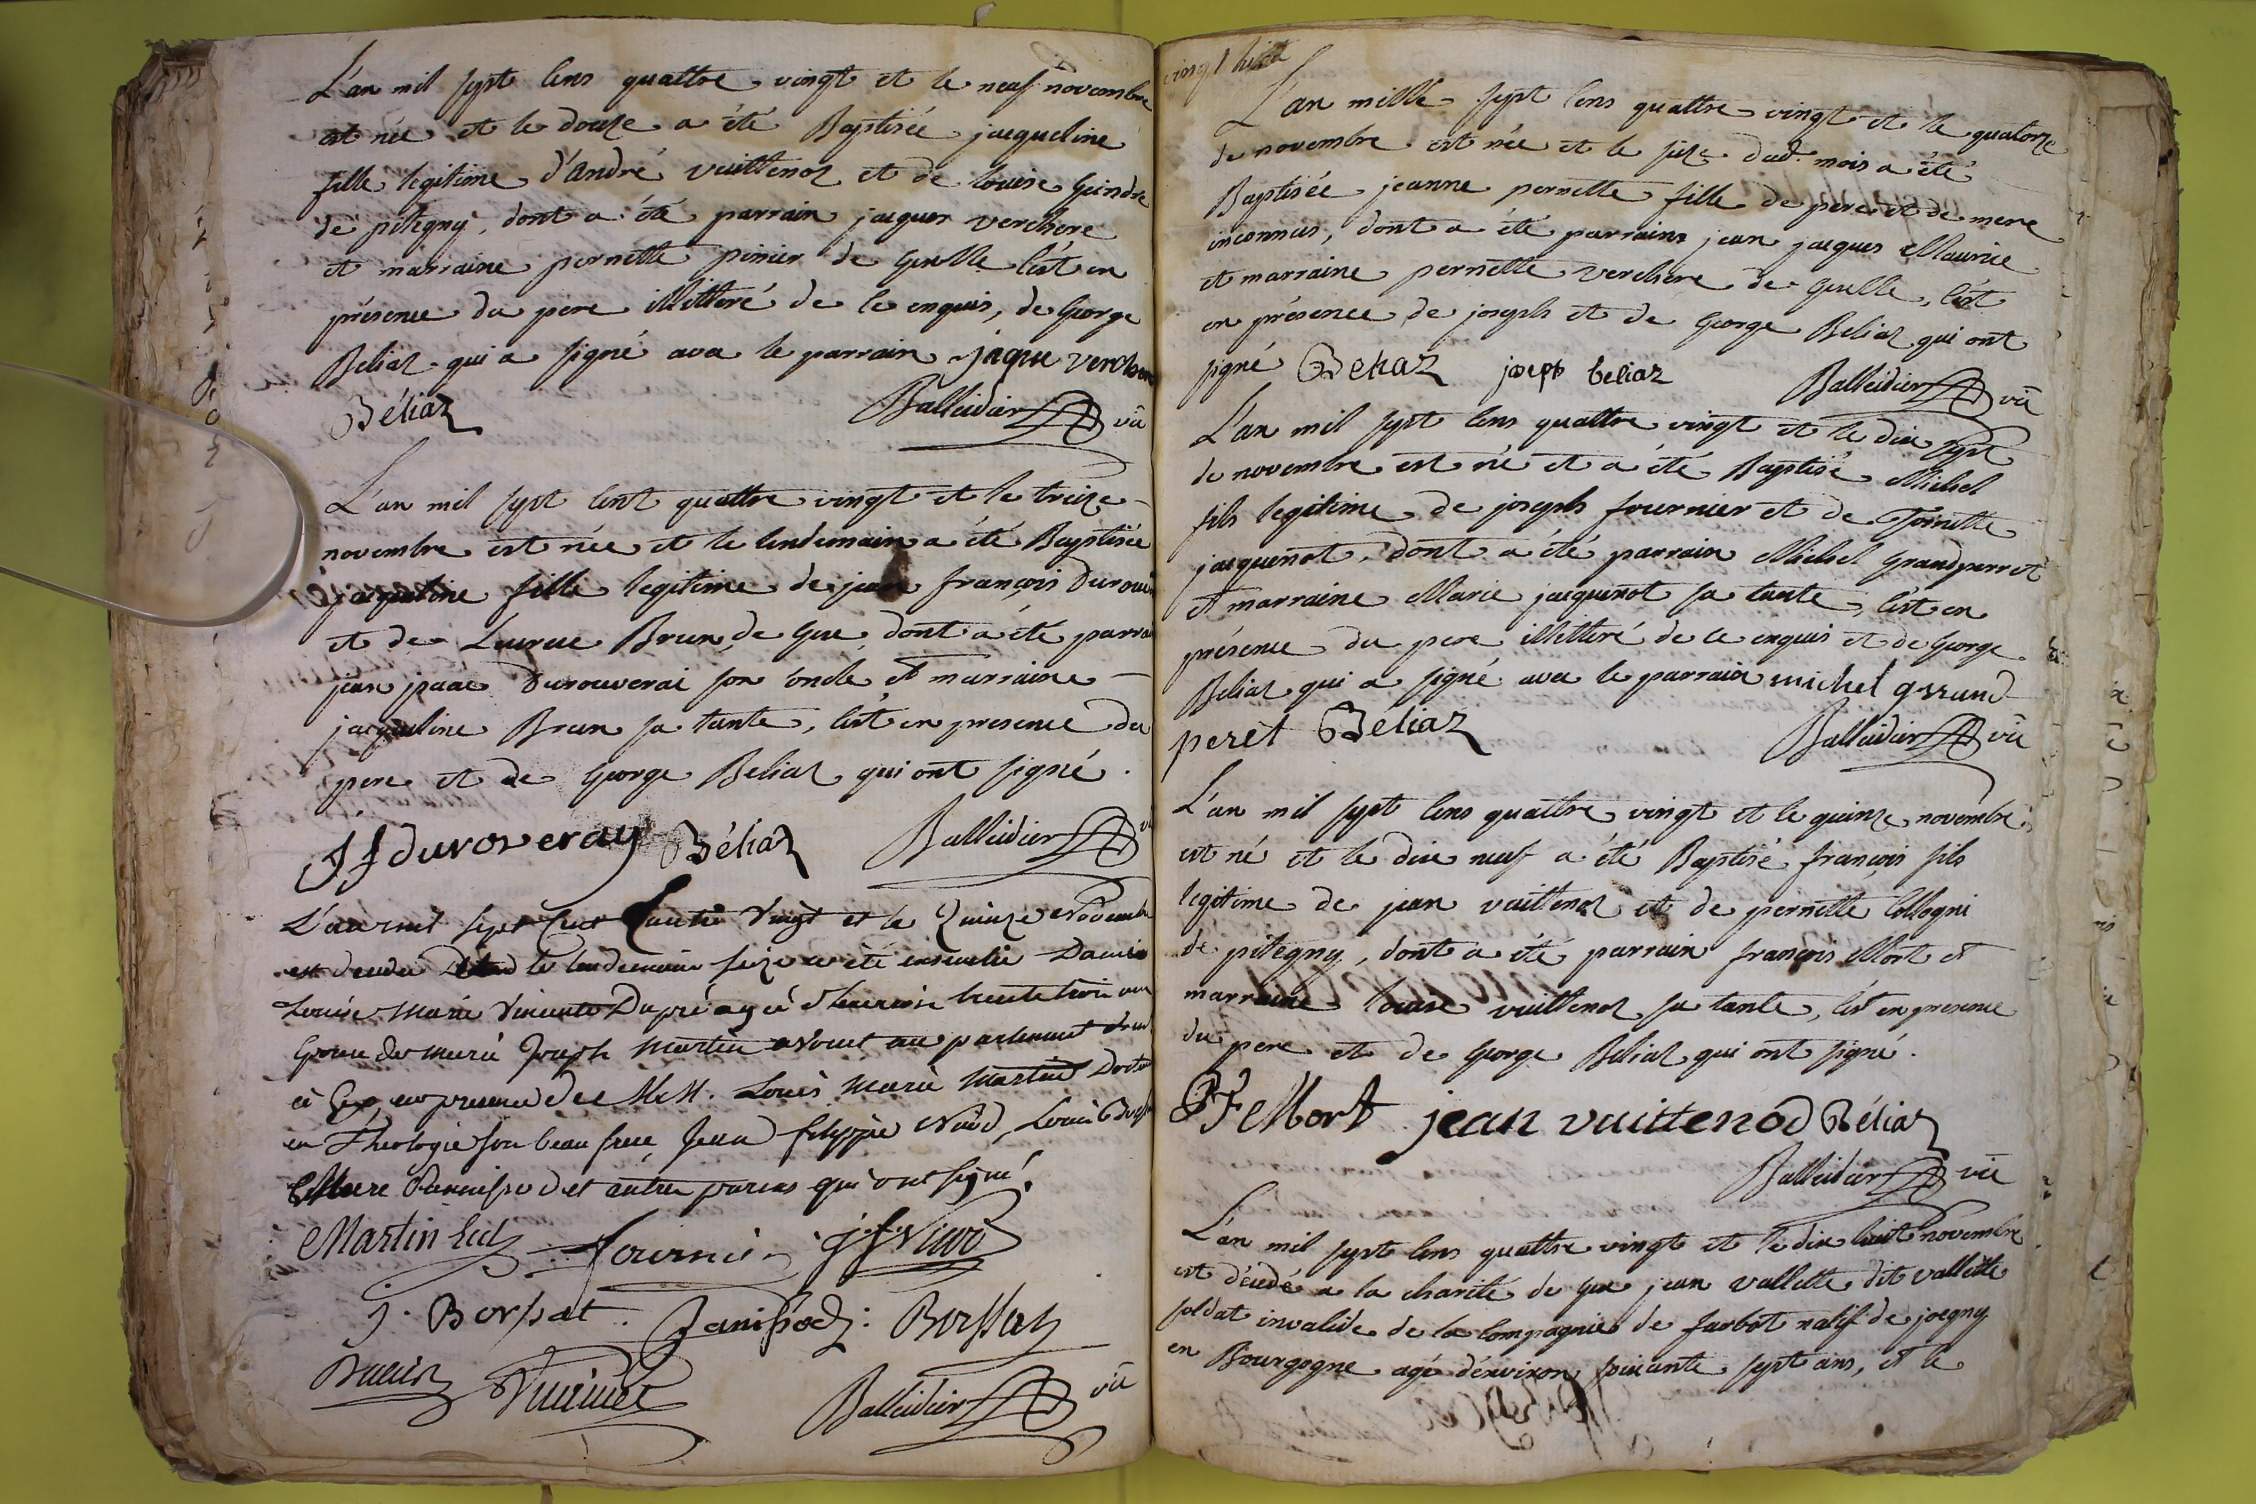 L'an mil sept cens quattre vingt et le neuf novembre
est née et le douze a été Baptisée jacqueline
fille legitime d'andré vuittenoz et de Louise Gindre
de pitegny, dont a été parrain jacques verchere
et marraine pernette pinier de Grille c'est en
présence du pere illitteré de ce enquis, de George
Beliaz qui a signé avec le parrain jaque verchere
Béliaz Balleidier vic
L'an mil sept cent quattre vingt et le treize
novembre est née et le lendemain a été Baptisée
jacqueline fille legitime de jean françois Durouv
et de Lucrece Brun de Gex, dont a été parra
jean jsaac Durouverai son oncle et marraine
jacqueline Brun sa tante, c'est en presence du
pere et de George Beliaz qui ont signé.
JJ duroveray Béliaz Balleidier
L'an mil sept cent quatre vingt et le Quinze Novembre
est decedée et le lendemain seize a été ensevelie Dame
Louise Marie Vincente Dupré agée d'environ trente trois ans
Epouse de Marie Joseph Martin avocat au parlement
à Gex, en presence de MM. Louis Marie Martin Docteur
en Theologie son beau frere, Jean filippe Nicod, Louis
et autres parens qui ont signé.
Martin fournier jf Nicod
j. Borssat. Janissod: Borssat
Balleidier vic
vingt huit
L'an mille sept cens quattre vingt et le quatorze
de novembre est née et le seize dud. mois a été
Baptisée jeanne pernette fille de pere et de mere
inconnus, dont a été parrain jean jacques Maurice
et marraine pernette verchere de Grille, c'est
en présence de joseph et de George Beliaz qui ont
signé Beliaz joseph beliaz Balleidier vic
L'an mil sept cens quattre vingt et le dix sept
de novembre est né et a été Baptisé Michel
fils legitime de joseph fournier et de Pernette
jacquenot, dont a été parrain Michel Grandperret
et marraine Marie jacquenot sa tante, c'est en
présence du pere illitteré de ce enquis et de George
Beliaz qui a signé avec le parrain michel grand
peret Béliaz Balleidier vic
L'an mil sept cens quattre vingt et le quinze novembre
est né et le dix neuf a été Baptisé françois fils
legitime de jean vuittenoz et de pernette Collogni
de pitegny, dont a été parrain françois Mort et
marraine Louise vuittenoz sa tante, c'est en presence
du pere et de George Beliaz qui ont signé.
F Mort jean vuittenod Béliaz
Balleidier vic
L'an mil sept cens quattre vingt et le dix huit novembre
est décédé a la charité de Gex jean vallette dit vallette
soldat invalide de la compagnie de farbot natif de joegny
en Bourgogne agé d'environ soixante sept ans, et le